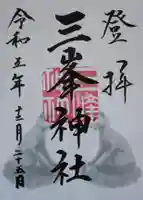 登拝
三峯神社
令和五年十二月二十五日